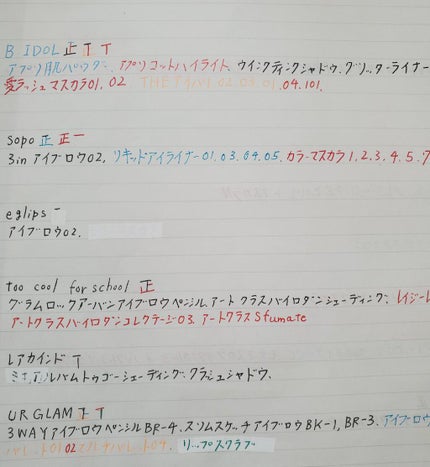 B IDOL 正 T T
アプリ肌パウダー、アプリコットハイライト、ウインクティンクシャドウ、グリッターライナー
愛ラッシュマスカラ01. 02 THEアイパレ02.03.01 .04.101.
sopo 正 正一
3in アイブロウ02. リキッドアイライナー01.03.04.05. カラーマスカラ1.2.3.4.5.7
eglips 一
アイブロウ02.
too cool for school 正
グラムロックアーバンアイブロウペンシル、アートクラスバイロダンシェーディング、
アートクラスバイロダンコレクテージ03. アートクラスSfumate
レアカインド T
アルバムトゥゴーシェーディング、クラッシュシャドウ、
URGLAM T T
3WAYアイブロウペンシルBR-4. スリムスケッチアイブロウBK-1, BR-3. アイブロウ
パレット0102 パレット04. リップスクラブ